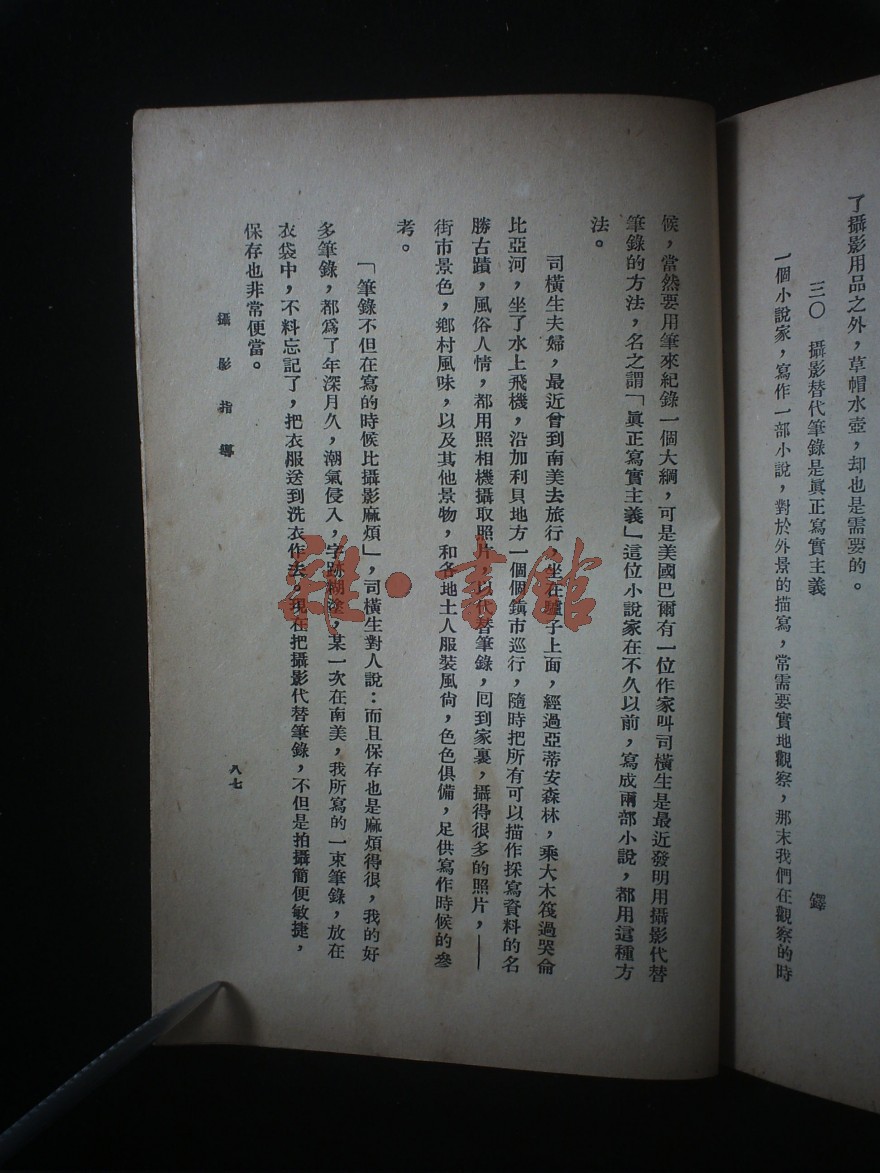 了攝影用品之外，草帽水壺，却也是需要的。
三〇　攝影替代筆錄是眞正寫實主義　鐸
一個小說家，寫作一部小說，對於外景的描寫，常需要實地觀察，那末我們在觀察的時
候，當然要用筆來紀錄一個大綱，可是美國巴爾有一位作家叫司橫生是最近發明用攝影代替
筆錄的方法，名之謂「眞正寫實主義」這位小說家在不久以前，寫成兩部小說，都用這種方
法。
司橫生夫婦，最近曾到南美去旅行，坐在驢子上面，經過亞蒂安森林，乘大木筏過哭侖
比亞河，坐了水上飛機，沿加利貝地方一個個鎮市巡行，隨時把所有可以描作採寫資料的名
勝古蹟，風俗人情，都用照相機攝取照片，以代替筆錄，囘到家裏，攝得很多的照片，——
街市景色，鄉村風味，以及其他景物，和各地土人服裝風尙，色色俱備，足供寫作時候的參
考。
「筆錄不但在寫的時候比攝影麻煩」，司橫生對人說：而且保存也是麻煩得很，我的好
多筆錄，都爲了年深月久，潮氣侵入，字跡糊塗，某一次在南美，我所寫的一束筆錄，放在
衣袋中，不料忘記了，把衣服送到洗衣作去。現在把攝影代替筆錄，不但是拍攝簡便敏捷，
保存也非常便當。
攝影指導
八七
雜·書館